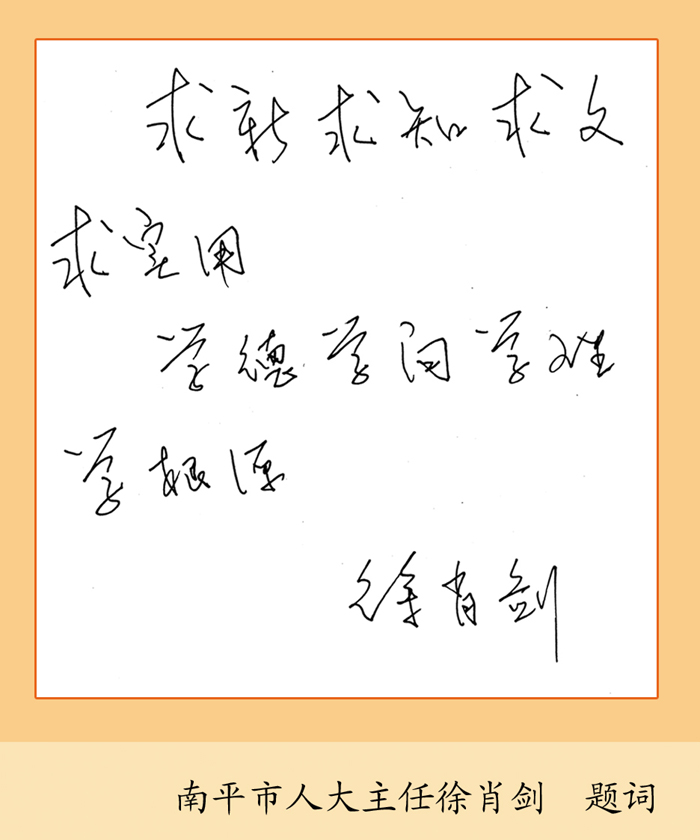 求新求知求文
求实用
学德学问学难
学根源
徐肖剑
南平市人大主任徐肖剑 题词